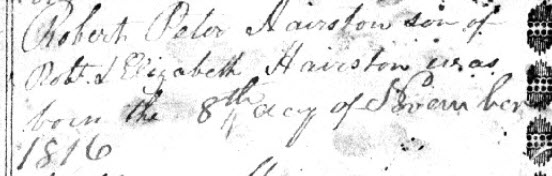 Robert Peter Hairston son of
Robt. & Elizabeth Hairston was
born the 8th day of November
1816